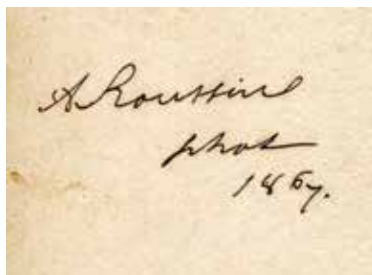 A Roussin
phot
1867.